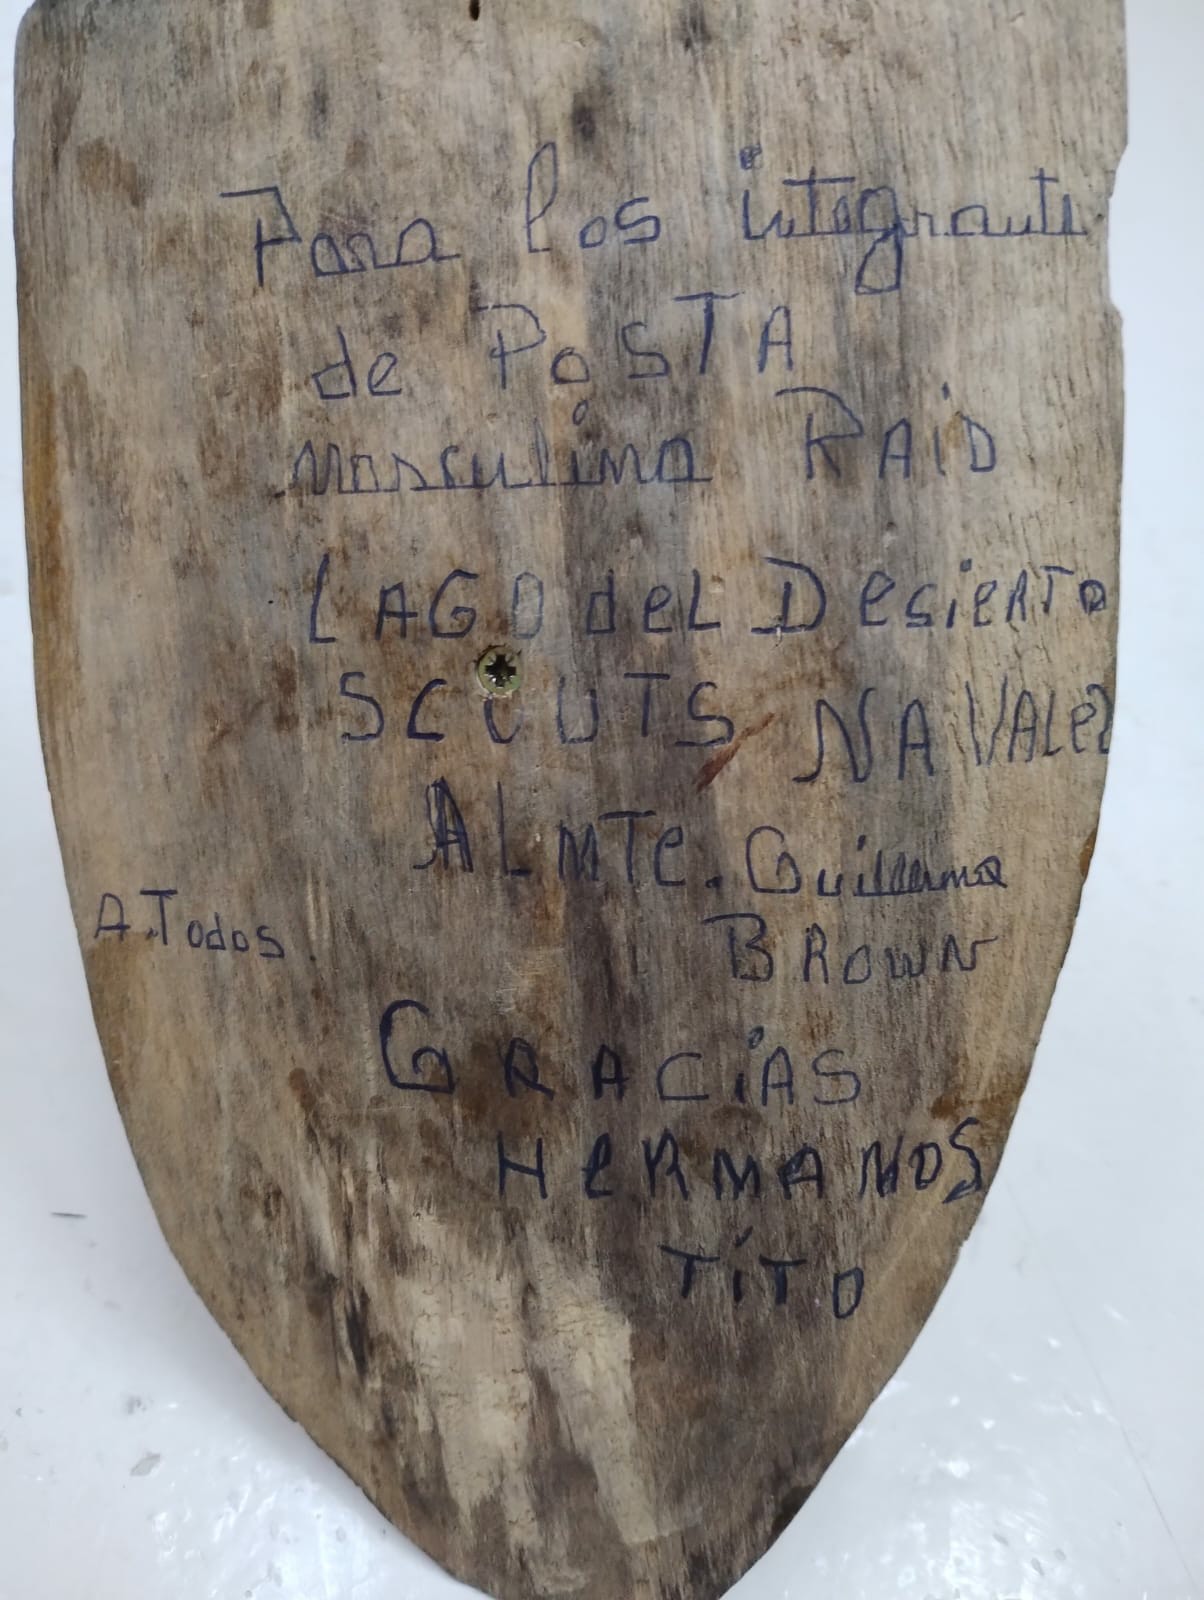 Para los integrante
de PosTA
masculina RAiD
LAGO deL DesieRTo
SCOUTS NAVALes
ALMTe. Guillermo
BROWN
A.Todos.
GRACiAS
HeRMANOS
TiTO